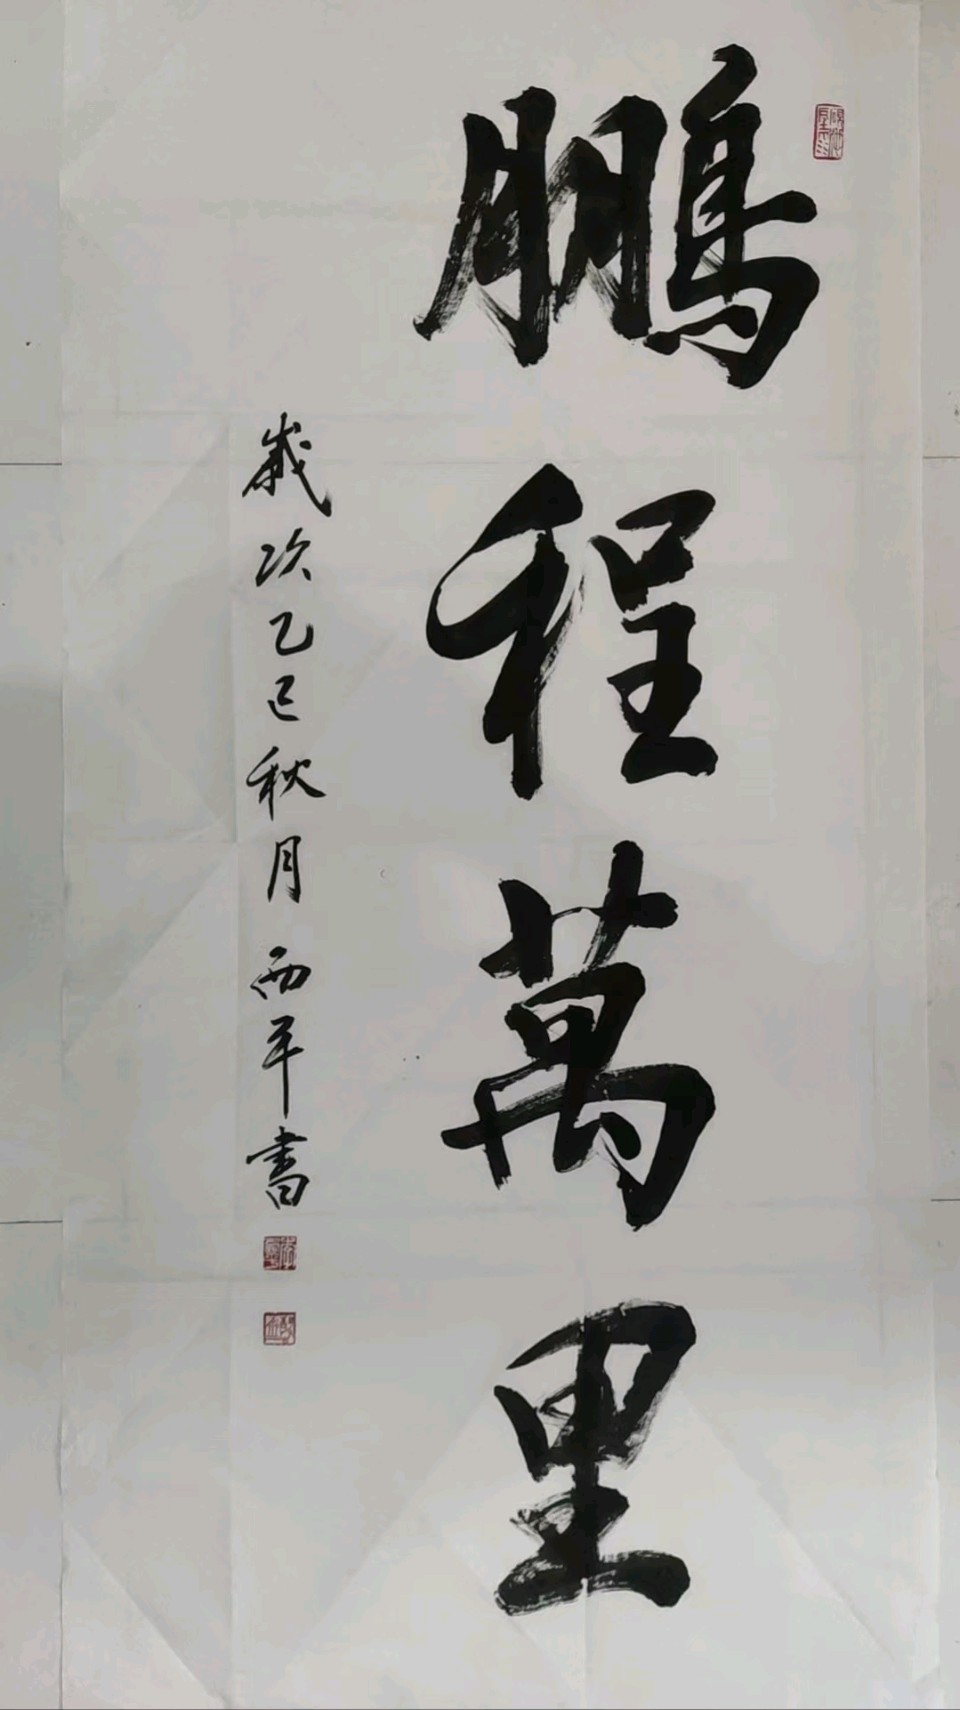 鵬程萬里
歲次乙巳秋月 西平書